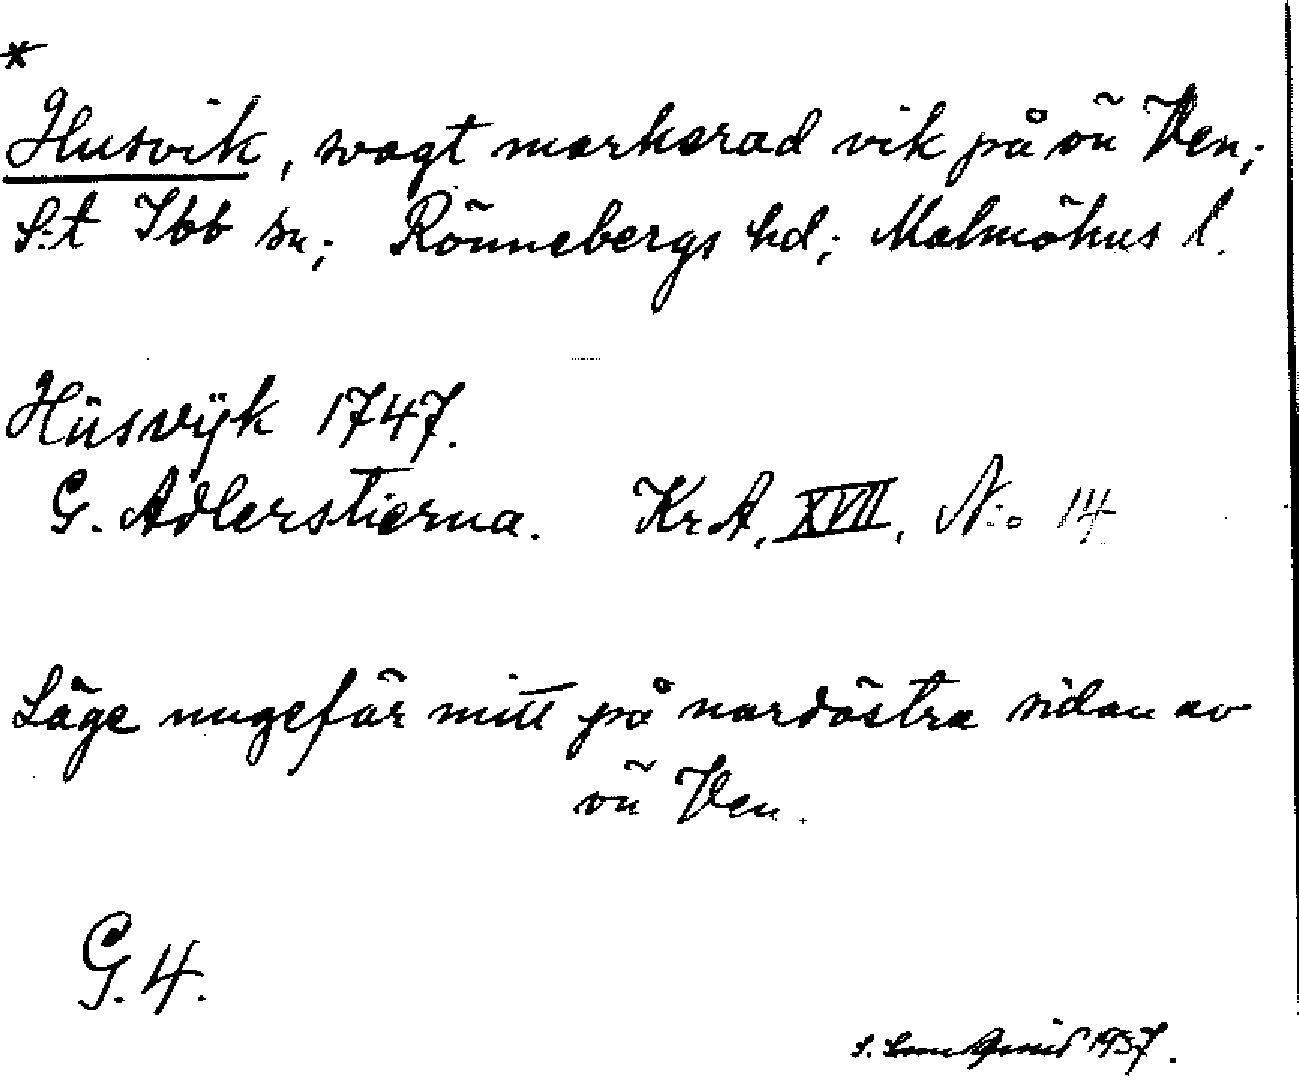 *
Husvik, svagt markerad vik på ön Ven;
S:t Ibb sn; Rönnebergs hd; Malmöhus l.
Hüsvÿk 1747.
G. Adlerstierna. KrA, XVII, N:o 14
Läge ungefär mitt på nordöstra sidan av
ön Ven.
G. 4.
S. 1937.